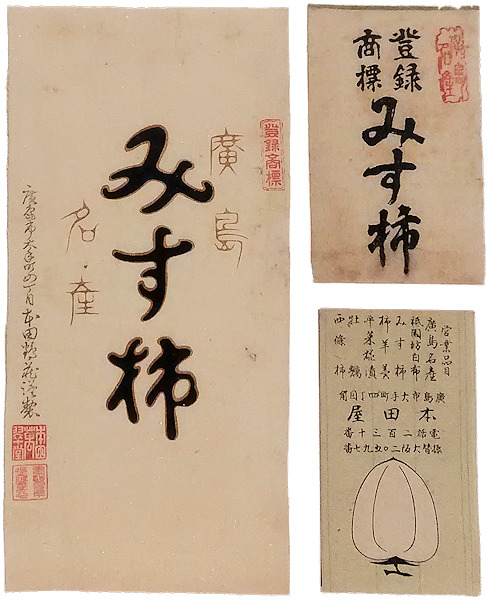 登録商標
廣島
みす柿
名産
廣島市大手町四丁目本田鶴蔵謹製
登録
商標
みす柿
営業品目
廣島名産
祇園坊白柿
みす柿
柿羊羹
平菜粕漬
牡蠣
西條柿
廣島市大手町四丁目角
本田屋
電話二百三十番
振替大阪二〇五九七番